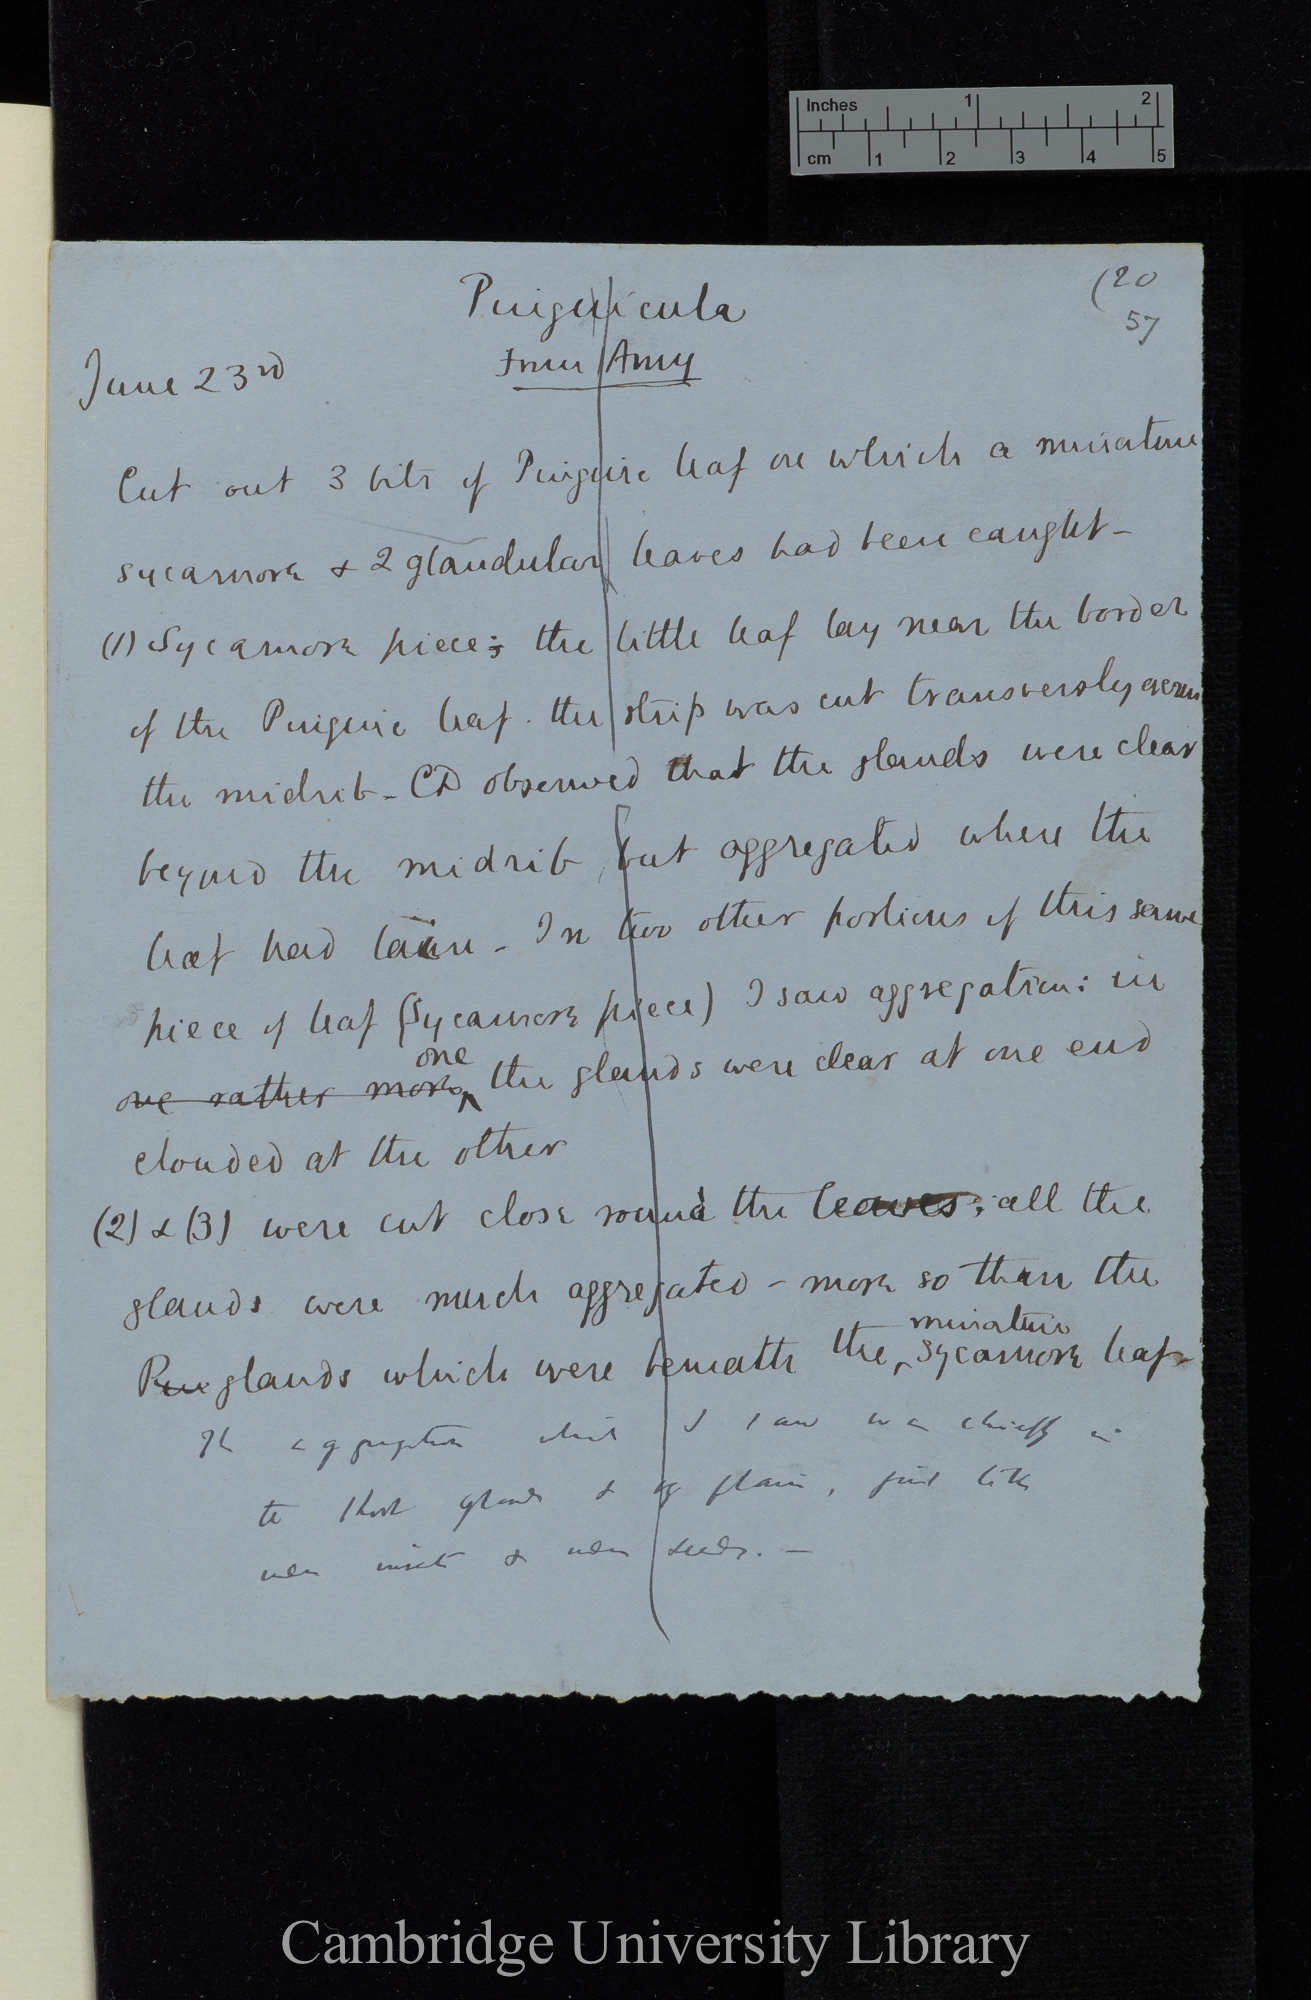 Inches 1 2
cm 1 2 3 4 5
(20
57
Pinguicula
from Amy
June 23rd
Cut out 3 bits of Pinguic leaf on which a miniature
sycamore & 2 glandular leaves had been caught -
(1) Sycamore piece; the little leaf lay near the border
of the Pinguic leaf. the strip was cut transversly across
the midrib - CD observed that the glands were clear
beyond the midrib, but aggregated where the
leaf had lain - In two other portions of this same
piece of leaf (Sycamore piece) I saw aggregation: in
one rather more one the glands were clear at one end
clouded at the other
(2) & (3) were cut close round the leaves; all the
glands were much aggregated - more so than the
Pin glands which were beneath the miniature sycamore leaf
The aggregation which I saw was chiefly in
the short glands & of plain, just like
under insects & under seeds. —
Cambridge University Library